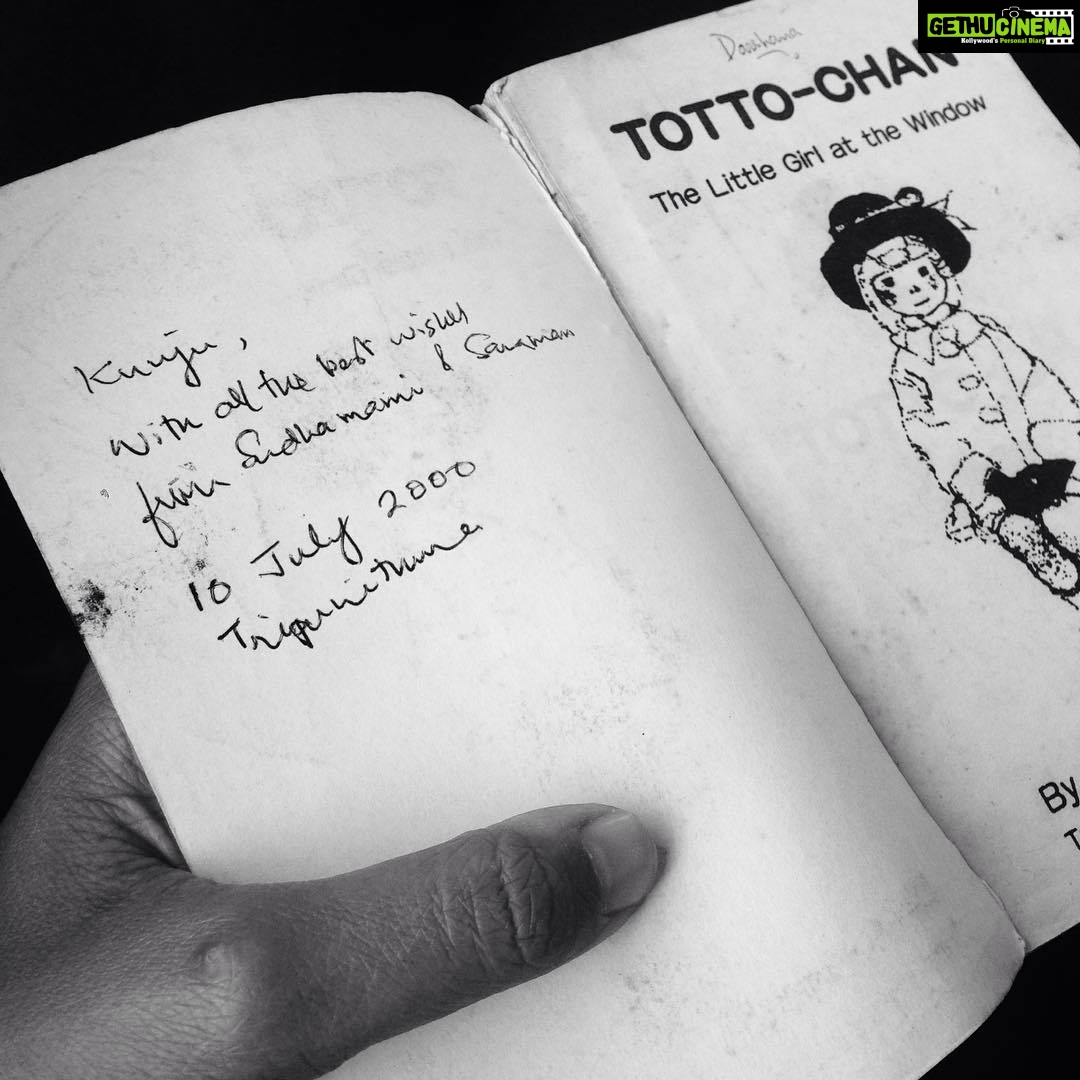 Kunju,
with all the best wishes
from Sudhamami & Sanaman
10 July 2000
Tripunithura
TOTTO-CHAN
The Little Girl at the Window
By
GETHUCINEMA
Kollywood's Personal Diary